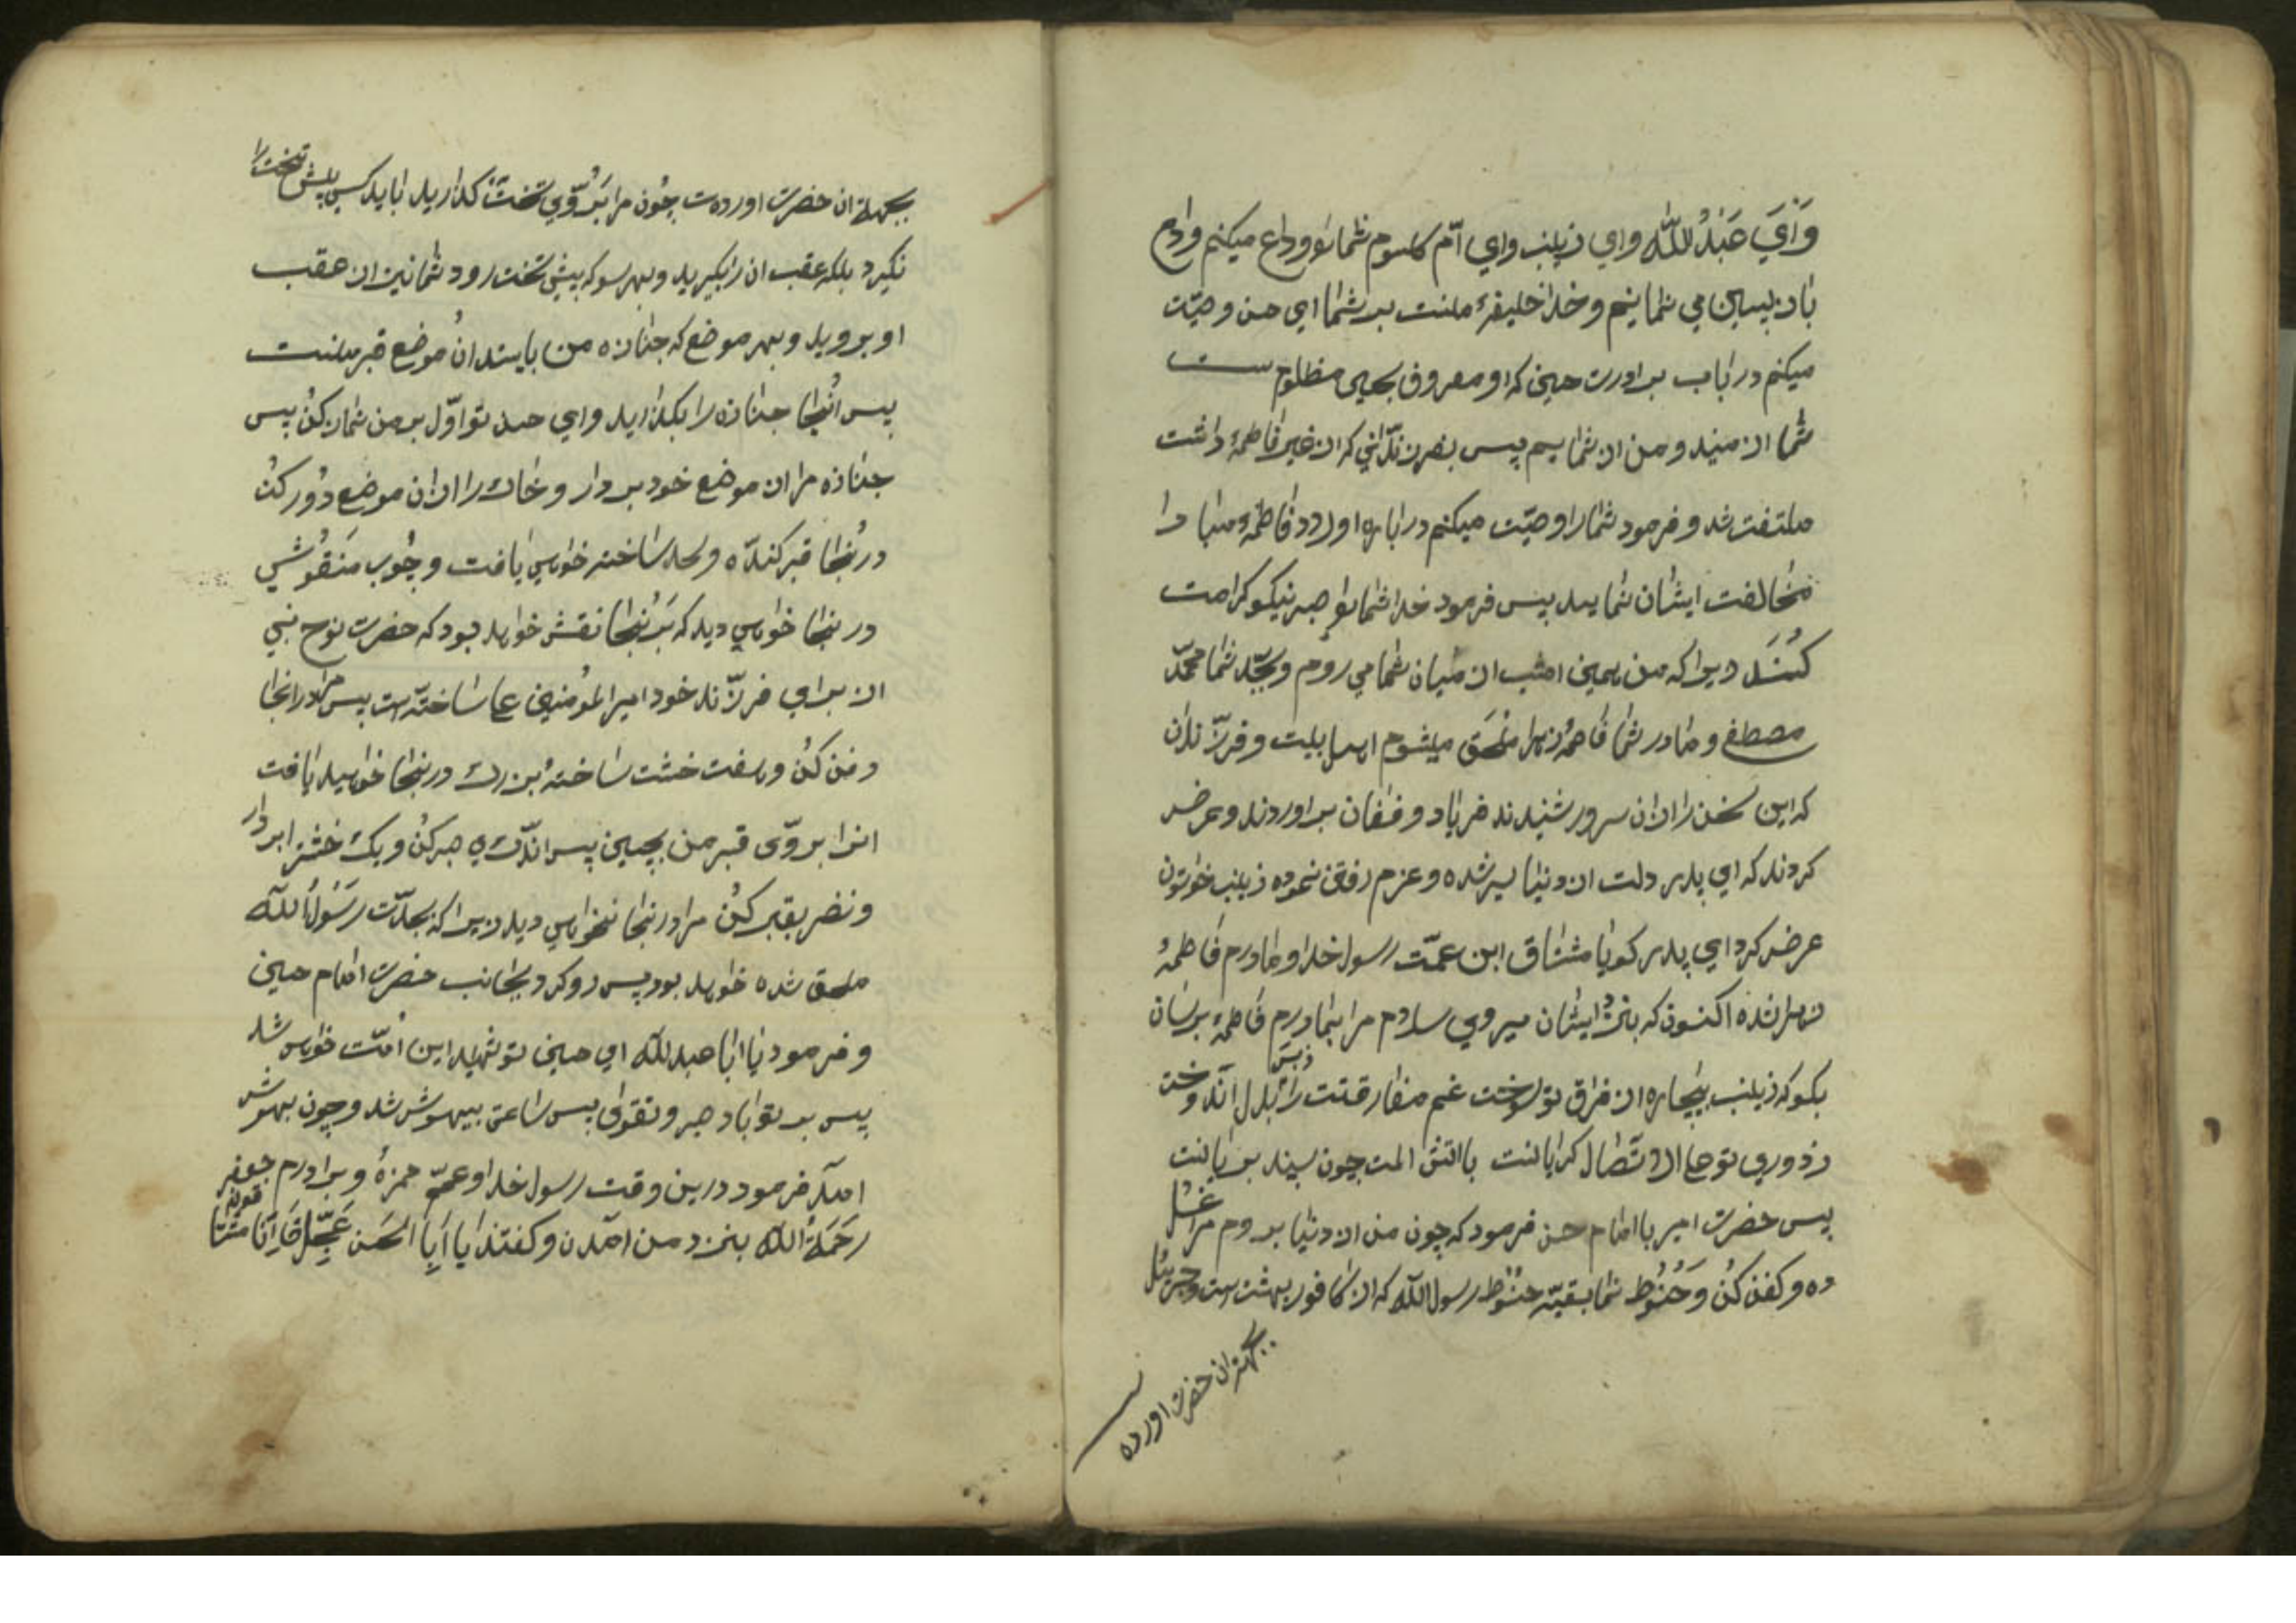 وَاَيَ عَبْدُ اللّٰه واي زينب واي امّ كلسوم شمارا وداع ميكنم وداع
باز پسين مي نماينم و خدا خليفهٔ منست بر شما اي حسن وصيّت
ميكنم در باب برادرت حسين كه او معروف بحيي مظلوم ست
شما از منيد و من از شمايم پس بفرزنداني كه از غير فاطمهٔ داشت
ملتفت شد و فرمود شمارا وصيّت ميكنم در باره اولاد فاطمهٔ مبادا
مخالفت ايشان نماييد پس فرمود خدا شمارا صبر نيكو كرامت
كُنَد ديرا كه من همين امشب از ميان شما مي روم و بجدّ شما محمّد
مصطفى و مادر شما فاطمهٔ زهرا ملحق ميشوم اهل بيت و فرزندان
كه اين سخن را از ان سرور شنيدند فرياد و فغان براوردند و عرض
كردند كه اي پدر دلت از دنيا سير شده و عزم رفتن نموده زينب خواتون
عرض كرد اي پدر كويا مشتاق ابن عمّت رسول خدا و مادرم فاطمهٔ
زهرا شده اكنون كه بنزد ايشان ميروي سلام مرا بمادرم فاطمهٔ برسان
بكو كه زينب بيچاره از فراق تو سوخت غم مفارقتت را زبس بدل اندوخت
ز دوري تو حال كرا بايست با اتش المت چون سپند بر بايست
پس حضرت امير با امام حسن فرمود كه چون من از دنيا بروم مرا غسل
ده و كفن كُن وَحُنُوط نما ببقيّه حنوط رسول اللّه كه از كافور بهشت ست و جبرئيل
بجهة ان حضرت اورده
بجهة ان حضرت اورده ست چون مرا بَرُوّي تخت كذاريد ابايد كسي پيش تخت را
نكيرد بلكه عقب ان را بكيريد و بهر سو كه پيش تخت رود شما نيز از عقب
او برويد و بهر موضع كه جنازه من بايستد ان موضع قبر منست
پس انجا جنازه را بكذاريد و اي حسن تو اوّل بر من نماز كُن پس
جنازه مرا از موضع خود بردار و خاك را از ان موضع دور كن
در انجا قبر كنده و لحد ساخته خواهي يافت و چُوب مَنقُوشي
در انجا خواهي ديد كه بَر انجا نقش خواهد بود كه حضرت نوح نبي
ان براي فرزند خود امير المؤمنين ع ساخته ست پس مرا در انجا
دفن كُن و هفت خشت ساختهٔ بزرك در انجا خواهيد يافت
انرا بروّى قبر من بچين پس اندكي صبر كُن و يك خشت را بردار
و نضر بقبر كُن مرا در انجا نخواهي ديد زيرا كه بجدّت رَسُوْلُ اللّه
ملحق شده خواهد بود پس رو كرد بجانب حضرت امام حسين
و فرمود يا ابا عبد اللّه اي حسين تو شهيد اين امّت خواهي شد
پس بر تو باد صبر و تقوى پس ساعتى بيهوش شد و چون بهوش
امد فرمود درين وقت رسول خدا و عمّم حمزهٔ و برادرم جعفر
رَحمَةُ اللّه بنزد من امدن و كفتند يا اَبا الحَسَن عَجِّل فَاِنّا مشتاقون